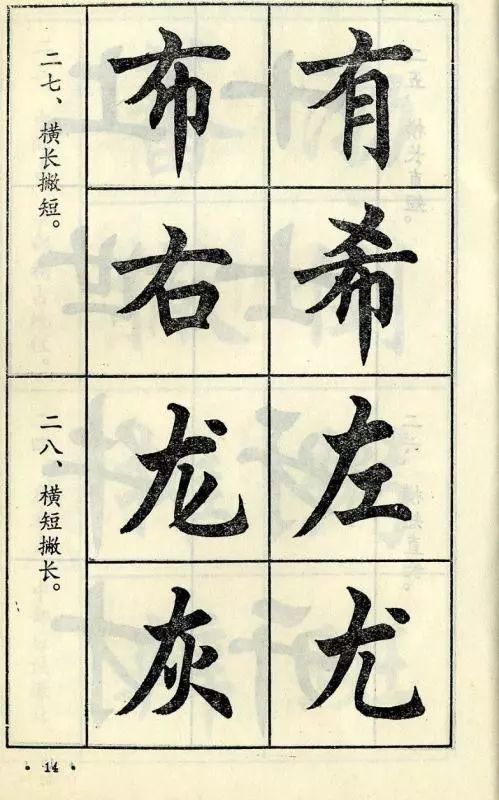 二七、横长撇短。
有希
布右
二八、横短撇长。
左尤
龙灰
· 14 ·